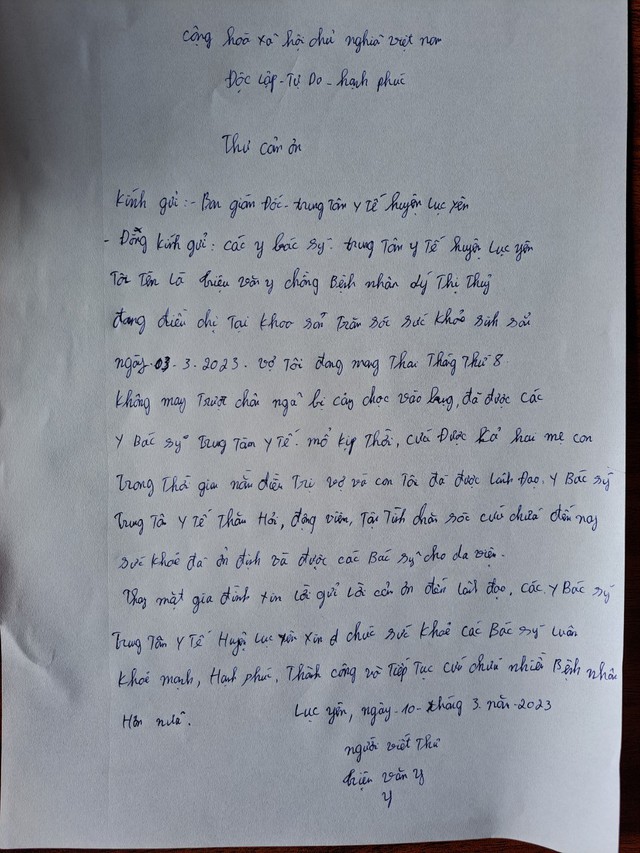 cộng hoà xã hội chủ nghĩa việt nam
Độc Lập - Tự Do - hạnh phúc
Thư cản ơn
Kính gửi : - Ban gián Đốc - trung Tân y Tế huyện Lục yên
- Đồng kính gửi : các y bác sỹ. trung Tân y Tế huyện Lục yên
Tôi Tên Là triệu văn y chồng Bệnh nhân Lý Thị Thuỷ
đang điều chị Tại khoa sản Trăn sóc sức khoẻ sinh sản
ngày 03 - 3 - 2023. vợ Tôi đang mang Thai Thág Thứ 8
không may Trượt chân ngã bị cây chọc vào bụng, đã được các
y Bác sỹ Trung Tâm y Tế mổ kịp Thời, cứu Được cả hai mẹ con
Trong Thời gian nằn điều Trị vợ và con Tôi đã được Lãnh Đạo, y Bác sỹ
Trung Tân y Tế Thăn Hỏi, động viên, Tận Tình chăn sóc cứu chữa đến nay
sức khoẻ đã ổn định và được các Bác sỹ cho da viện.
Thay mặt gia đình xin Lời gửi Lời cản ơn đến Lãnh đạo, các y Bác sỹ
Trung Tân y Tế Huyện Lục yên xin chúc sức khoẻ các Bác sỹ Luân
khoẻ mạnh, Hạnh phúc, Thành công và Tiếp Tục cứu chữa nhiều Bệnh nhân
Hơn nữa.
Lục yên, ngày - 10 - tháng 3. năn - 2023
người viết Thư
triệu văn y
y